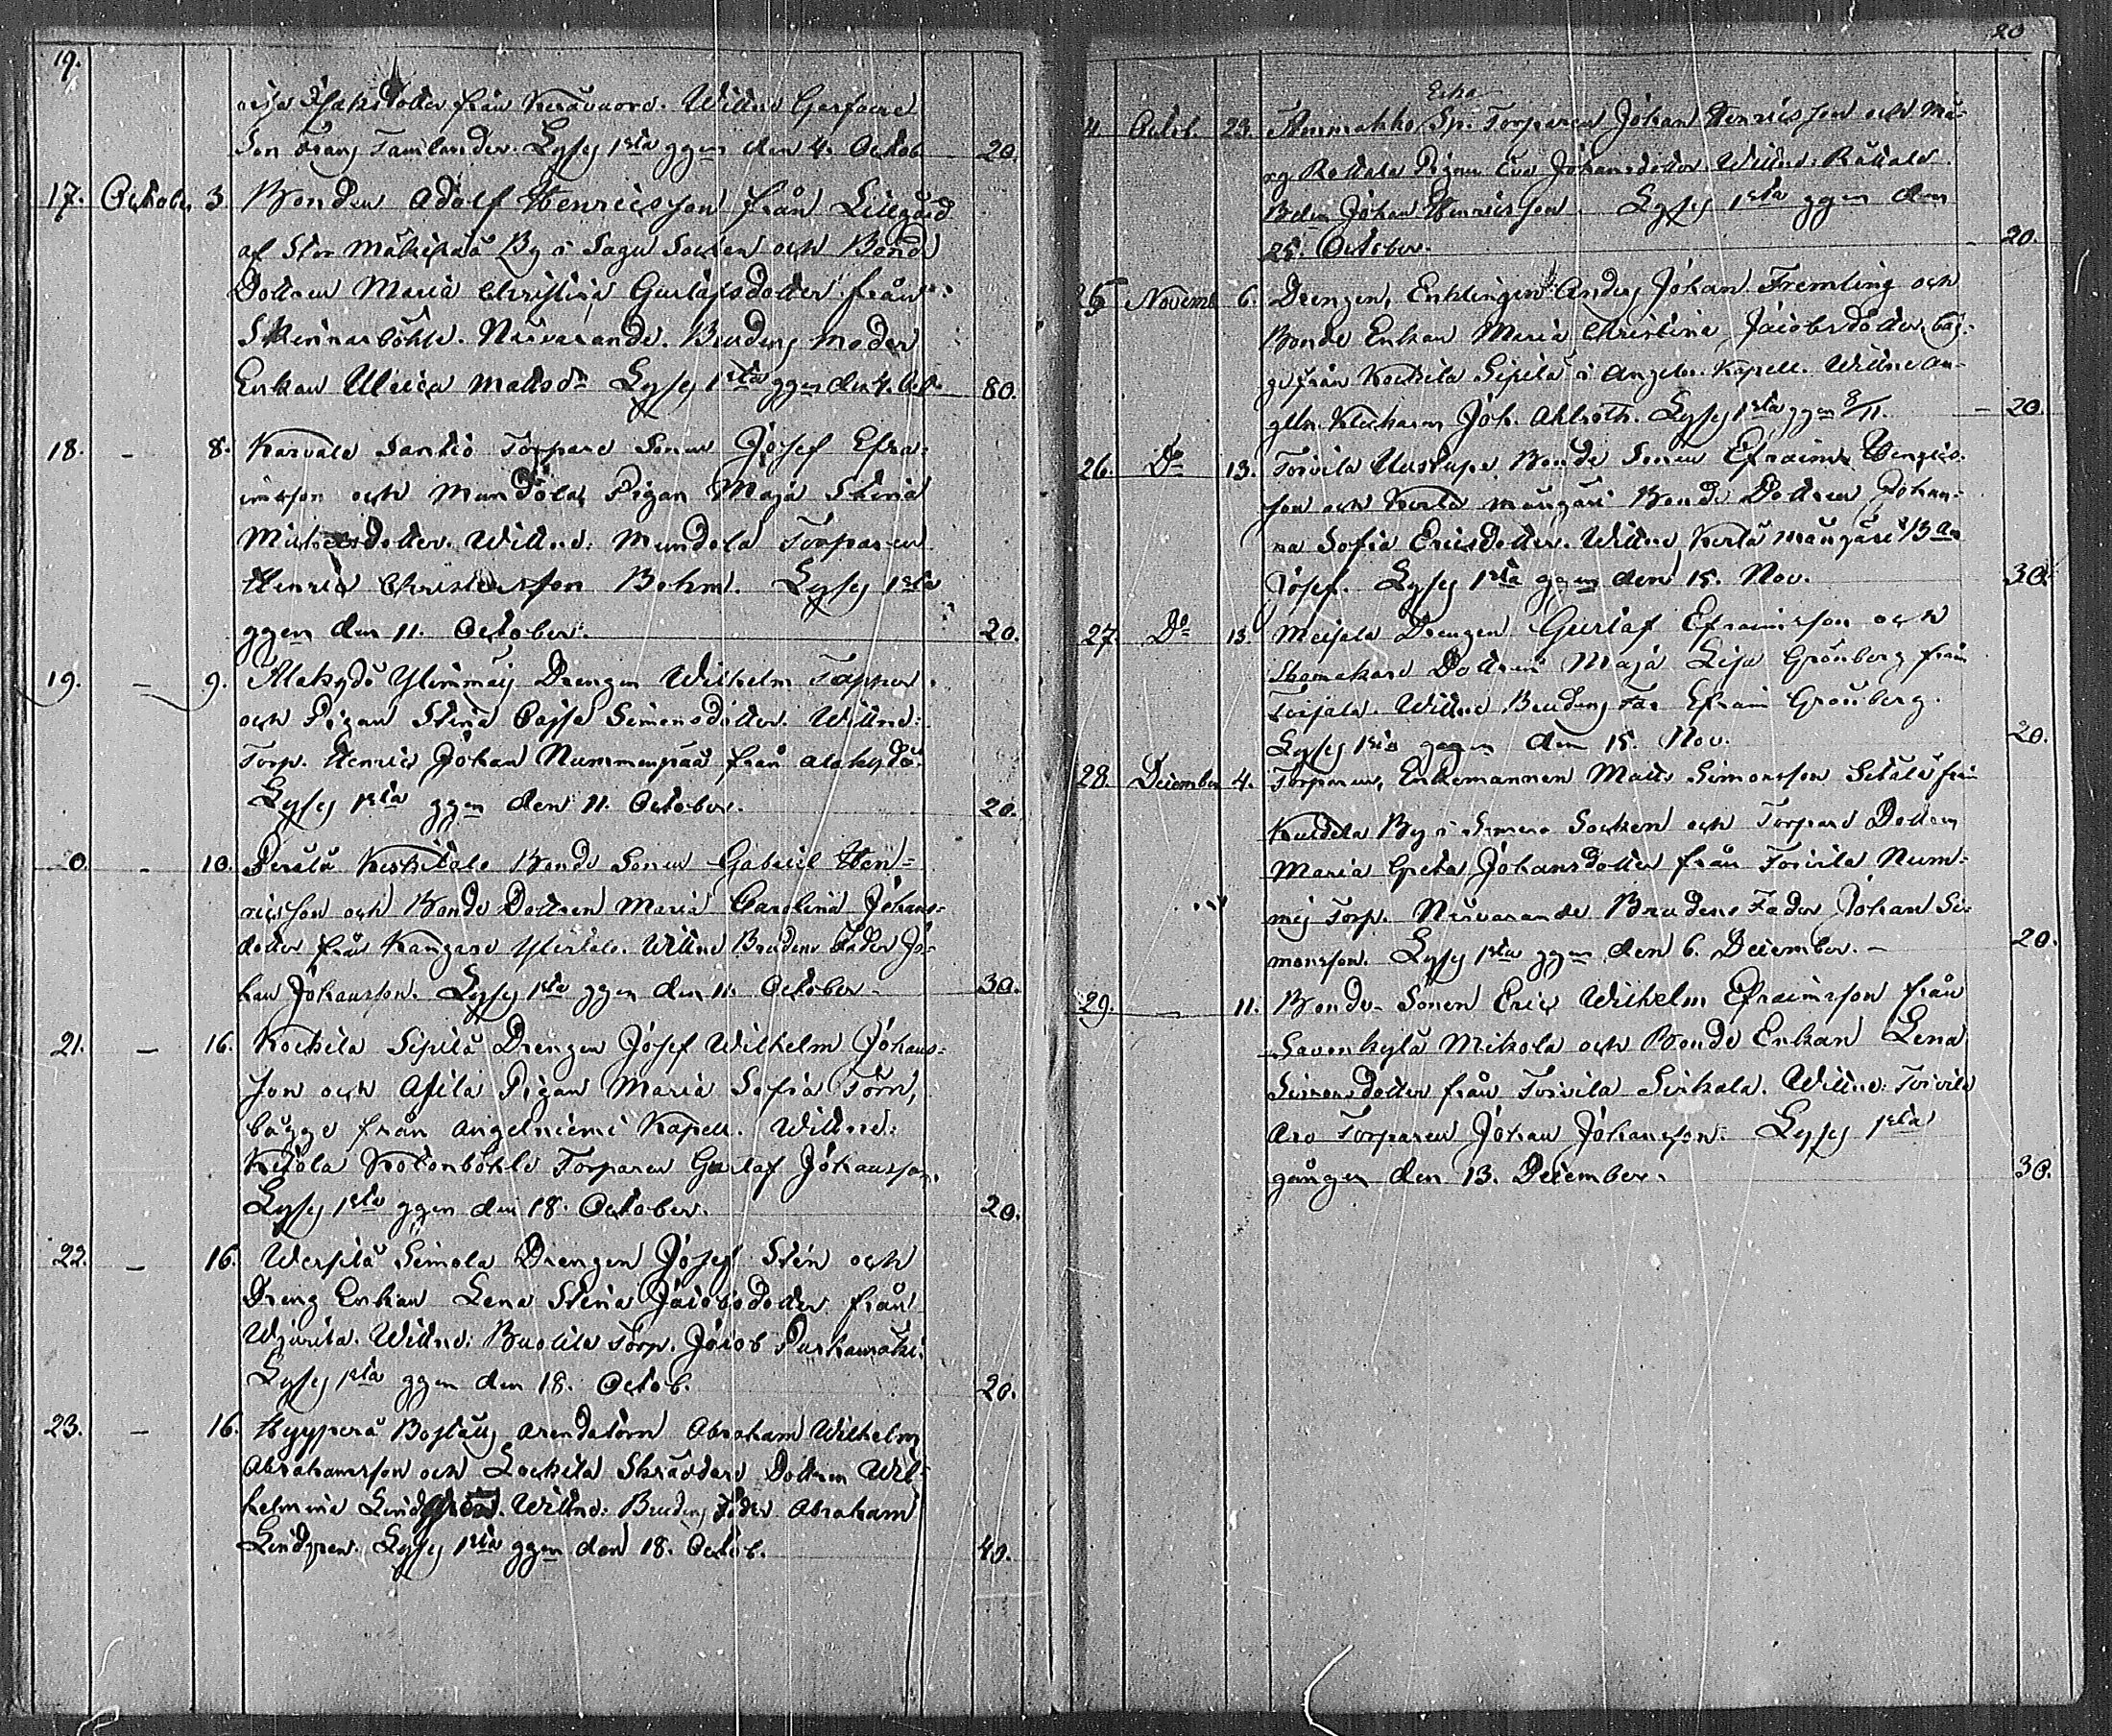 19.
Isaksdotter från Keräwuore. Wittne Garfware
Son Frans Tamlander. Lyses 1sta ggen den 4. Octob. 20.
17. Octobr. 3. Bonden Adolf Henricsson från Lillgård
af Stor Mäkipää By i Sagu Socken och Bonde
Dottren Maria Christina Gustafsdotter från
Skinnarböhle. Närvarande. Brudens Moder
Enkan Ulrica Mattsdr Lyses 1sta ggen den 4. Oct. 80.
18. - 8. Karvala Santio Torpare Sonen Josef Efra-
imsson och Mundola Pigan Maja Stina
Michelsdotter. Wittne: Mundola Torparen
Henric Christersson Bohm. Lyses 1sta
ggen den 11. October. 20.
19. - 9. Alakydö Ylimmäis Drengen Wilhelm Tapper
och Pigan Stina Cajsa Simonsdotter. Wittne:
Torp. Henric Johan Nummenpää från Alakydö.
Lyses 1sta ggen den 11. October. 20.
0. - 10. Perälä Keskitalo Bonde Sonen Gabriel Hen-
ricsson och Bonde Dottren Maria Carolina Johans-
dotter från Kangare Ylitalo. Wittne Brudens Fader Jo-
han Johansson. Lyses 1sta ggen den 11. October. 30.
21. - 16. Kockila Sipilä Drengen Josef Wilhelm Johans-
son och Asila Pigan Maria Sofia Törn,
bägge från Angelniemi Kapell. Wittne:
Ketola Kotonböhle Torparen Gustaf Johansson.
Lyses 1sta ggen den 18. October. 20.
22. - 16. Werpilä Simola Drengen Josef Stén och
Dreng Enkan Lena Stina Jacobsdotter från
Wittne: Torp. Jacob
Lyses 1sta ggen den 18. Octob. 20.
23. - 16. Hyyperä Boställs Arendatorn Abraham Wilhelm
Abrahamsson och Lockila Skräddare Dottren Wil-
helmina Wittne: Brudens Fader Abraham
Lindgren. Lyses 1sta ggen den 18. Octob. 40.
20
4 Octob. 23. Ammakko Sp. Torparen Johan Henricsson och Mä-
Pigan Eva Johansdotter. Wittne:
Johan Henricsson. Lyses 1sta ggen den
25. October. 20.
25 Novemb 6. Drengen, Enklingen Anders Johan Fremling och
Bonde Enkan Maria Christina Jacobsdotter, bäg-
ge från Kockila Sipilä i Angeln. Kapell. Wittne An-
geln. Klockaren Joh. Ahlroth. Lyses 1sta ggen 8/11. 20.
26. Do 13. Toivila Uustupa Bonde Sonen Efraim Henrics-
son och Kerlä Bonde Dottren Johan-
na Sofia Ericsdotter. Wittne Kerlä
Josef. Lyses 1sta ggen den 15. Nov. 30.
27. Do 13. Meisala Drengen Gustaf Efraimsson och
Skomakare Dottren Maja Lisa Grönberg från
Wittne Brudens Far Efraim Grönberg.
Lyses 1sta ggen den 15. Nov. 20.
28. December 4. Torparen, Enkemannen Matts Simonsson Setälä från
By i Socken och Torpare Dottren
Maria Greta Johansdotter från Toivila Num-
mis Torp. Närvarande Brudens Fader Johan Si-
monsson. Lyses 1sta ggen den 6. December. - 20.
29. - 11. Bonde-Sonen Eric Wilhelm Efraimsson från
Savonkylä Mikola och Bonde Enkan Lena
Simonsdotter från Toivila Sirkala. Wittne: Toivila
Aro Torparen Johan Johansson. Lyses 1sta
gången den 13. December. 30.